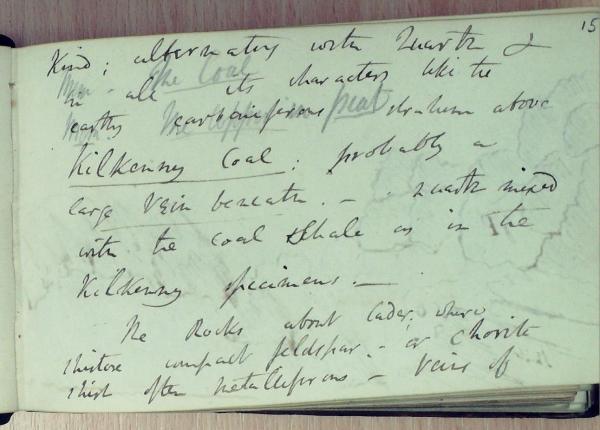 15
Kind; alternating with Quartz &
in all its characters like the
earthy carboniferous stratum above
Kilkenny Coal: probably a
large Vein beneath. — . quartz mixed
with the coal Shale as in the
Kilkenny specimens. —
The Rocks about Cader, where
schistose compact feldspar - or Chlorite
schist often metalliferous - veins of